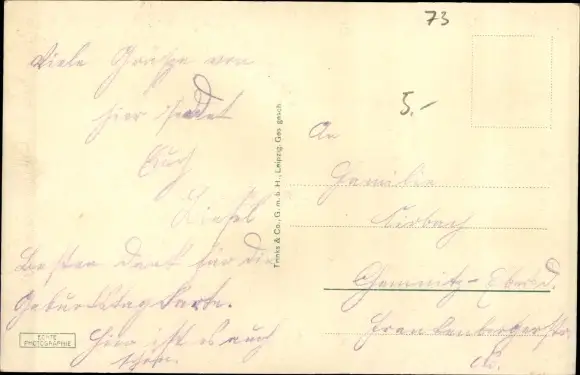 73
5.-
Viele Grüße von
hier sendet
Euch
Liesel
Besten Dank für die
Geburtstagskarte.
Hier ist es auch
schön.
ECHTE
PHOTOGRAPHIE
Trinks & Co., G. m. b. H., Leipzig. Ges. gesch.
An
Familie
Chemnitz-Ebersd.
Frankenbergerstr.